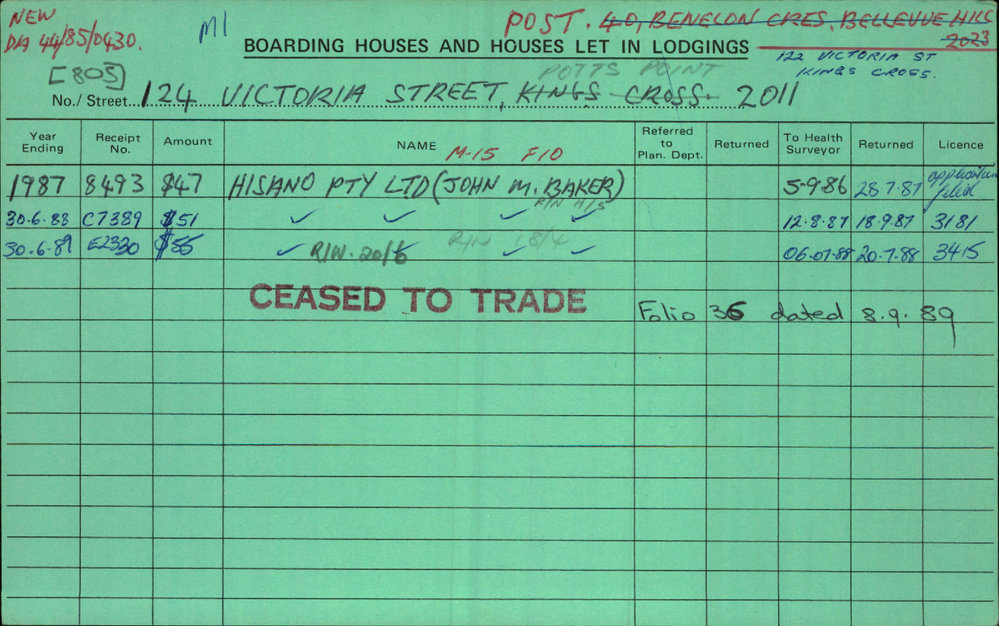 NEW
DA 44/85/0430.
M1
POST. 40, BENELON CRES. BELLEVUE HILL
2023
BOARDING HOUSES AND HOUSES LET IN LODGINGS
122 VICTORIA ST
KINGS CROSS.
[805]
POTTS POINT
No./Street 124 VICTORIA STREET, KINGS CROSS. 2011
Year Ending Receipt No. Amount NAME Referred to Plan. Dept. Returned To Health Surveyor Returned Licence
M-15 F10
1987 8493 $47 HISANO PTY LTD (JOHN M. BAKER) 5-9-86 28-7-87 application
R/N
30.6.88 C7389 $51 ✓ ✓ ✓ ✓ 12-8-87 18.9.87 3181
30.6.89 E2330 $55 ✓ R/W. 20/6 R/N 18/4 ✓ ✓ 06.07.88 20.7.88 3415
CEASED TO TRADE
Folio 36 dated 8.9.89